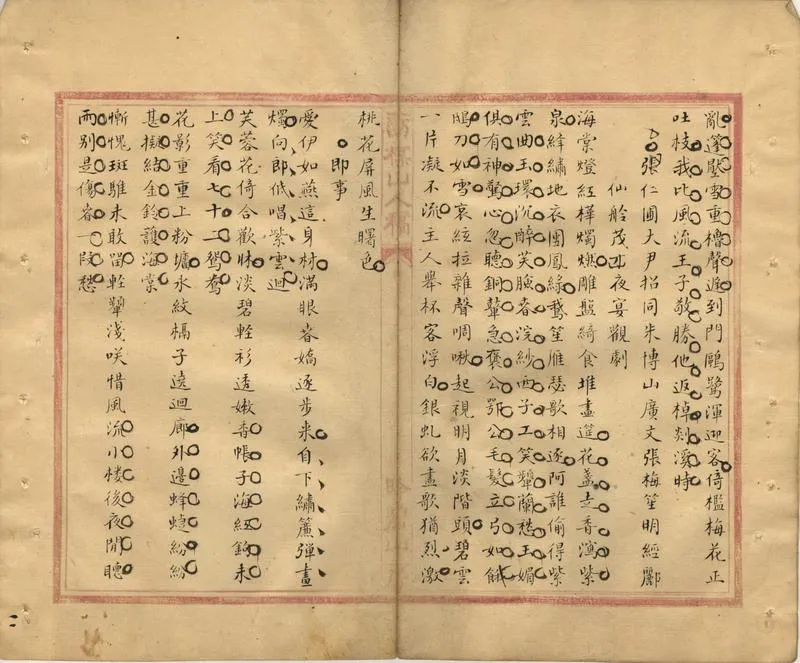 亂篷壓雪重櫓聲遲到門鷗鷺渾迎客倚檻梅花正
吐枝我比風流王子敬勝他返棹剡溪時
張仁圃大尹招同朱博山廣文張梅笙明經酈
仙舲茂才夜宴觀劇
海棠燈紅樺燭燃雕盤綺食堆畫筵花盞走香演紫
泉絳繡地衣團鳳綠鵝笙雁瑟歌相逐阿誰偷得紫
雲曲玉環沉醉笑臉春浣紗西子工笑顰蘭愁玉媚
俱有神驚心忽聽銅鼙急褒公鄂公毛髮立弓如餓
鴟刀如雪哀絃拉雜聲啁啾起視明月淡階頭碧雲
一片凝不流主人舉杯客浮白銀虬欲盡歌猶烈激
桃花屏風生曙色
即事
愛伊如燕這身材滿眼春嬌逐步來自下繡簾彈畫
燭向郎低唱紫雲迴
芙蓉花倚合歡牀淡碧輕衫透嫩香帳子海紅鉤未
上笑看七十二鴛鴦
花影重重上粉墻水紋槅子遶迴廊外邊蜂蝶紛紛
甚擬結金鈴護海棠
慚愧斑騅未敢留輕顰淺咲惜風流小樓後夜閒聽
雨別是傷春一段愁